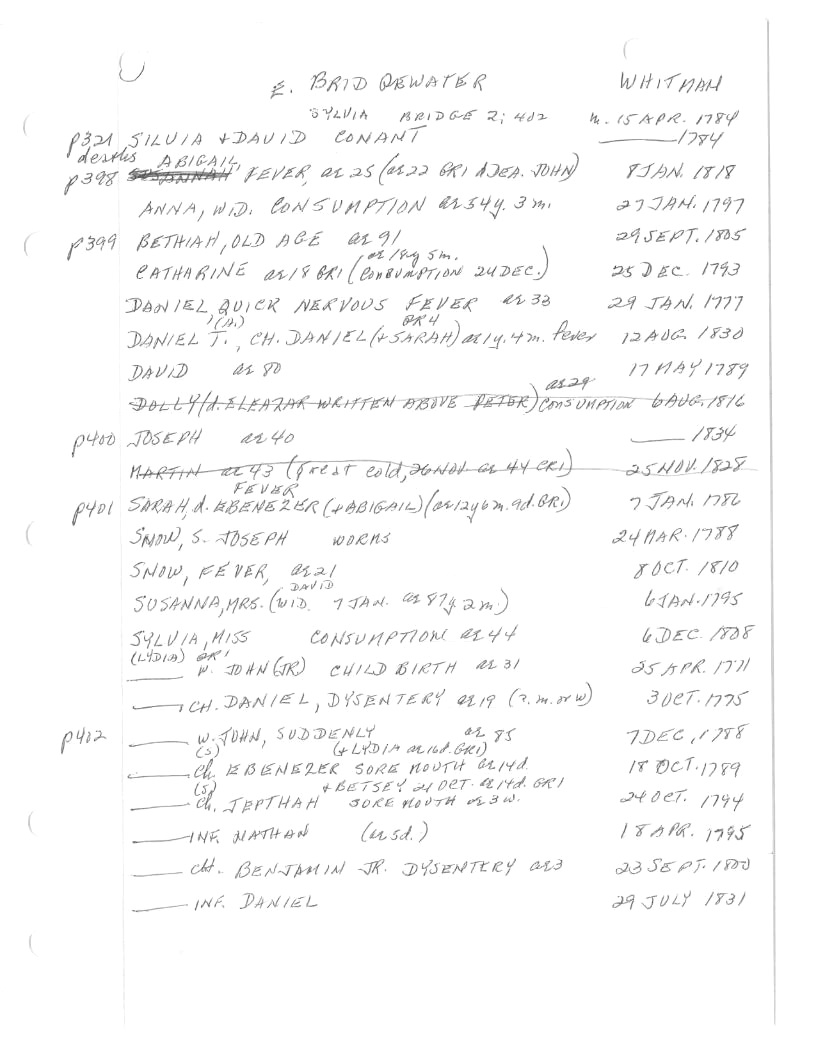 E. BRIDGEWATER WHITMAN
SYLVIA BRIDGE 2; 402 m. 15 APR. 1784
p321 SILVIA + DAVID CONANT ——— 1784
deaths ABIGAIL,
p398 SUSANNAH FEVER, ae 25 (ae 22 GR1 d DEA. JOHN) 8 JAN. 1818
ANNA, WID. CONSUMPTION ae 34y. 3 m. 27 JAN. 1797
p399 BETHIAH, OLD AGE ae 91 29 SEPT. 1805
ae 18y 5m.
CATHARINE ae 18 GR1 (CONSUMPTION 24 DEC.) 25 DEC. 1793
DANIEL QUICK NERVOUS FEVER ae 33 29 JAN. 1777
(A.) GR4
DANIEL T., CH. DANIEL (+ SARAH) ae 1y. 4 m. fever 12 AUG. 1830
DAVID ae 80 17 MAY 1789
ae 29
DOLLY (d. ELEAZAR WRITTEN ABOVE PETER) CONSUMPTION 6 AUG. 1816
p400 JOSEPH ae 40 ——— 1834
MARTIN ae 43 (great cold, 26 NOV. ae 44 CR1) 25 NOV. 1828
FEVER
p401 SARAH, d. EBENEZER (+ ABIGAIL) (ae 12y 6 m. 9d. GR1) 7 JAN. 1786
SNOW, S. JOSEPH WORMS 24 MAR. 1788
SNOW, FEVER, ae 21 8 OCT. 1810
DAVID
SUSANNA, MRS. (WID. 7 JAN. ae 87y. 2 m.) 6 JAN. 1795
SYLVIA, MISS CONSUMPTION ae 44 6 DEC. 1808
(LYDIA) GR1
——— W. JOHN (JR) CHILD BIRTH ae 31 25 APR. 1771
——— CH. DANIEL, DYSENTERY ae 19 (?. m. or w) 3 OCT. 1775
p402 ——— W. JOHN, SUDDENLY ae 85 7 DEC, 1788
(S) (+ LYDIA ae 16d. GR1)
——— Ch EBENEZER SORE MOUTH ae 14d. 18 OCT. 1789
(S) + BETSEY 21 OCT. ae 14d. GR1
——— Ch. JEPTHAH SORE MOUTH ae 3 w. 24 OCT. 1794
——— INF. NATHAN (ae 5d.) 18 APR. 1795
——— CH. BENJAMIN JR. DYSENTERY ae 3 23 SEPT. 1800
——— INF. DANIEL 29 JULY 1831